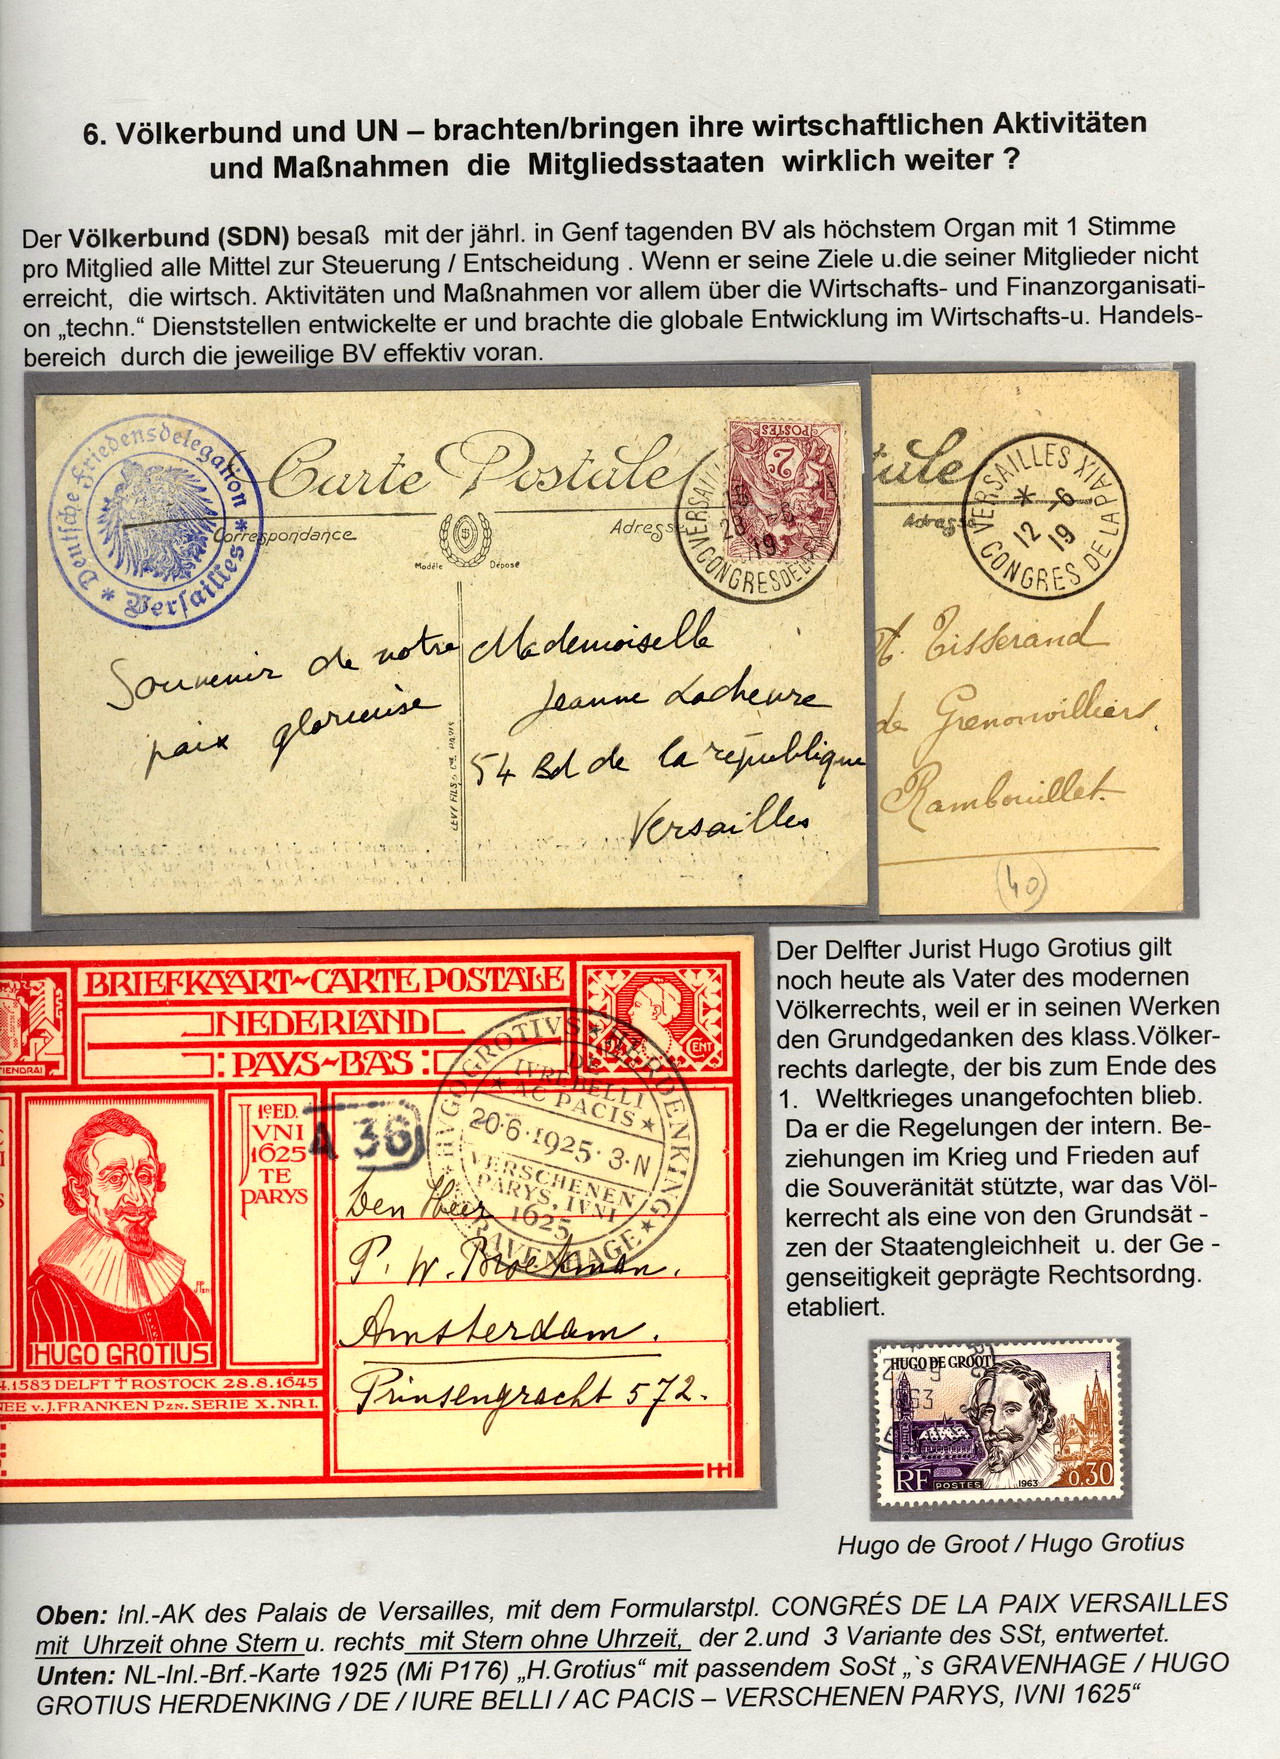 6. Völkerbund und UN – brachten/bringen ihre wirtschaftlichen Aktivitäten
und Maßnahmen die Mitgliedsstaaten wirklich weiter ?
Der Völkerbund (SDN) besaß mit der jährl. in Genf tagenden BV als höchstem Organ mit 1 Stimme
pro Mitglied alle Mittel zur Steuerung / Entscheidung . Wenn er seine Ziele u.die seiner Mitglieder nicht
erreicht, die wirtsch. Aktivitäten und Maßnahmen vor allem über die Wirtschafts- und Finanzorganisati-
on „techn.“ Dienststellen entwickelte er und brachte die globale Entwicklung im Wirtschafts-u. Handels-
bereich durch die jeweilige BV effektiv voran.
Deutsche Friedensdelegation
* Versailles *
Carte Postale
Correspondance
Adresse
Modèle Déposé
POSTES
2
VERSAILLES
19
CONGRES DE LA
Souvenir de notre
paix glorieuse
Mademoiselle
Jeanne Lacheure
54 Bd de la république
Versailles
LEVY FILS & Cie PARIS
tale
Adresse
VERSAILLES XIVPAIX
* -6
12 19
CONGRES DE LA PAIX
Tisserand
de Grenonvilliers.
Rambouillet.
40
BRIEFKAART~CARTE POSTALE
NEDERLAND
:PAYS~BAS:
TIENDRAI
CENT
1e ED.
IVNI
1625
TE
PARYS
A 36
HVGO GROTIVS * HERDENKING *
'S GRAVENHAGE
DE
IVRE BELLI
* AC PACIS *
20·6·1925·3·N
VERSCHENEN
PARYS, IVNI
1625
HUGO GROTIUS
4.1583 DELFT † ROSTOCK 28.8.1645
NEE v. J. FRANKEN Pzn. SERIE X. NR I.
Den Heer
P. W. Broekman.
Amsterdam.
Prinsengracht 572.
Der Delfter Jurist Hugo Grotius gilt
noch heute als Vater des modernen
Völkerrechts, weil er in seinen Werken
den Grundgedanken des klass.Völker-
rechts darlegte, der bis zum Ende des
1. Weltkrieges unangefochten blieb.
Da er die Regelungen der intern. Be-
ziehungen im Krieg und Frieden auf
die Souveränität stützte, war das Völ-
kerrecht als eine von den Grundsät -
zen der Staatengleichheit u. der Ge -
genseitigkeit geprägte Rechtsordng.
etabliert.
HUGO DE GROOT
RF POSTES 1963 0,30
Hugo de Groot / Hugo Grotius
Oben: Inl.-AK des Palais de Versailles, mit dem Formularstpl. CONGRÉS DE LA PAIX VERSAILLES
mit Uhrzeit ohne Stern u. rechts mit Stern ohne Uhrzeit, der 2.und 3 Variante des SSt, entwertet.
Unten: NL-Inl.-Brf.-Karte 1925 (Mi P176) „H.Grotius“ mit passendem SoSt „`s GRAVENHAGE / HUGO
GROTIUS HERDENKING / DE / IURE BELLI / AC PACIS – VERSCHENEN PARYS, IVNI 1625“